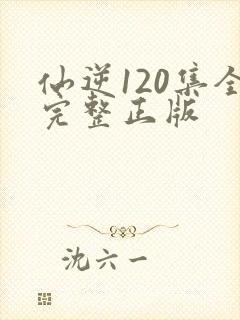 仙逆120集全
完整正版
沈六一